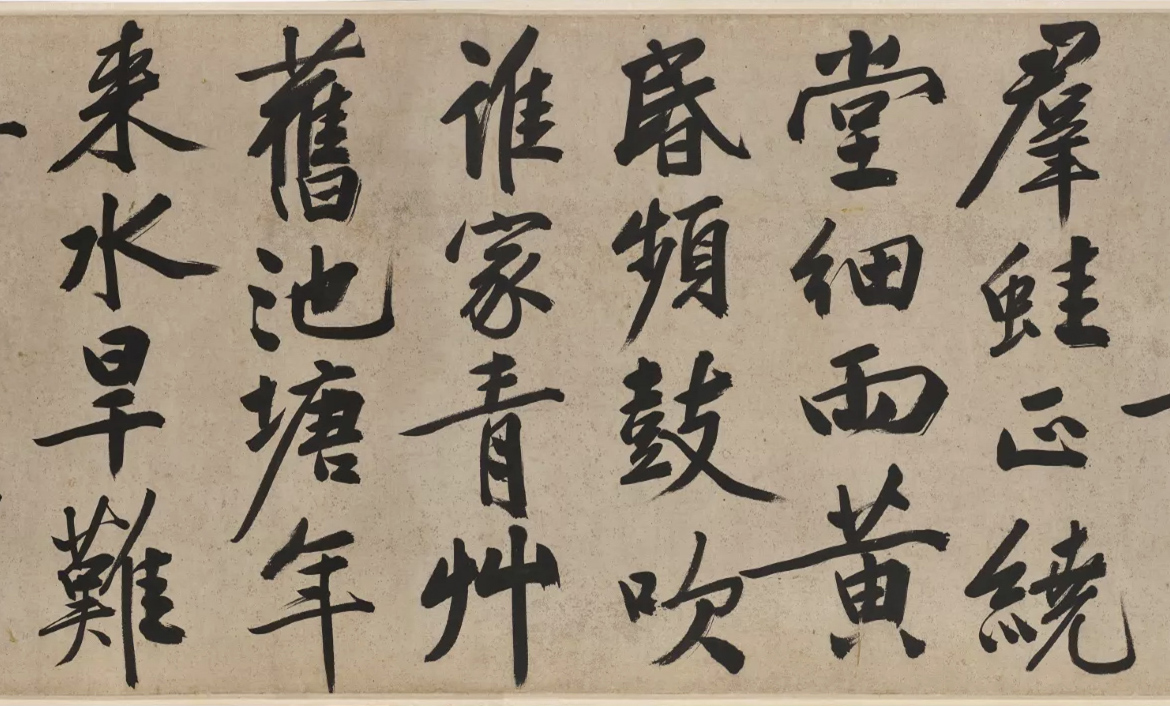 羣蛙正繞
堂細雨黄
昏頻鼓吹
誰家青艸
舊池塘年
来水旱難